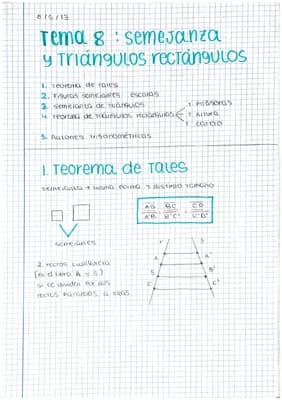 8/5/13
Tema 8 : semejanza
y Triángulos rectángulos
1. Teorema de Tales
2. Figuras semejantes. escalas
3. semejanza de triángulos
4. Teorema de triángulos rectángulos
T. Pitágoras
T. altura
T. cateto
5. Razones trigonométricas
1. Teorema de Tales
semejanza → misma forma y distinto tamaño
semejantes
AB BC CD
A'B' B'C' C'D'
2 rectas cualquiera
(en el libro r y s)
si se dividen por
rectas paralelas a ellas
r s
A A'
B B'
C C'